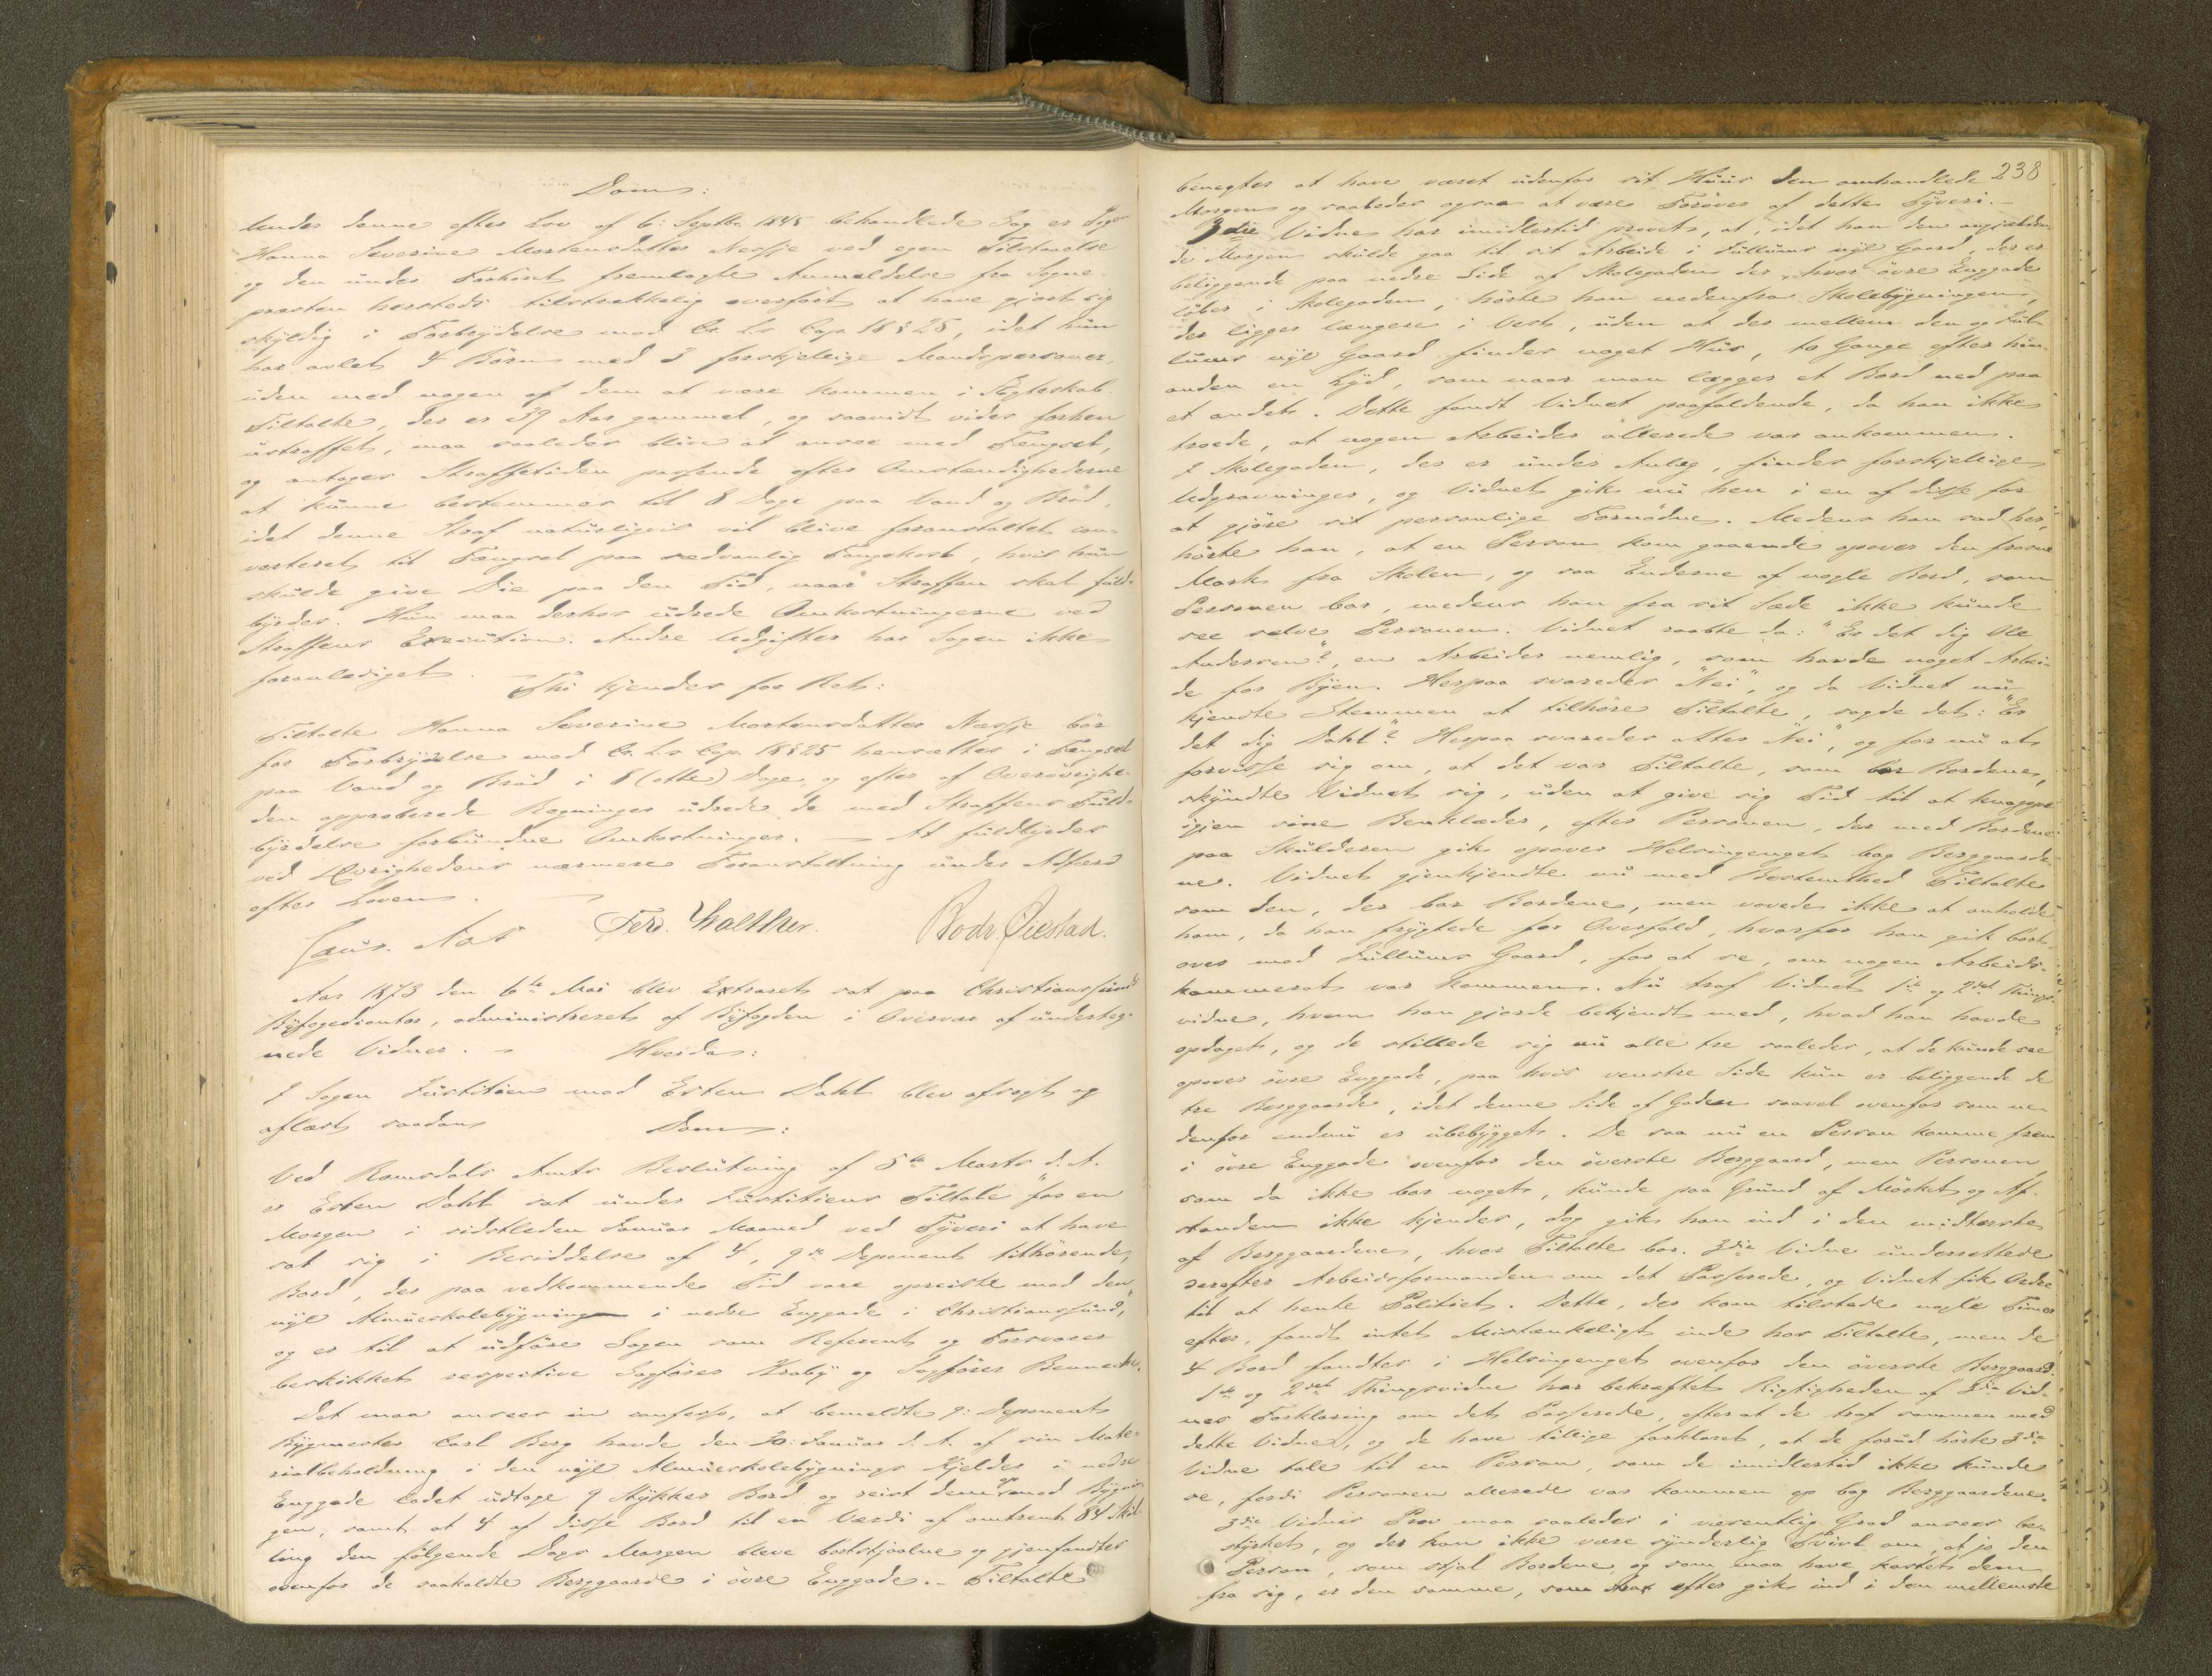 Dom:
Under denne efter Lov af 6: Septbr. 1845 behandlede Sag er Pigen
Hanna Severine Mortensdatter Nessje ved egen Tilstaaelse
og den under Forhöret fremlagte Anmeldelse fra Sogne-
præsten hersteds tilstrækkelig overført at have gjort sig
skyldig i Forbrydelse mod Cr. Lov Cap. 18 § 25, idet hun
har avlet 4 Börn med 3 forskjellige Mandspersoner,
uden med nogen af dem at være kommen i Ægteskab.
Tiltalte, der er 39 Aar gammel, og saavidt vides forhen
ustraffet, maa saaledes blive at ansee med Fængsel,
og antages Straffetiden passende efter Omstændighederne
at kunne bestemmes til 8 Dage paa Vand og Bröd,
idet denne Straf naturligvis vil blive foranstaltet con-
verteret til Fængsel paa sædvanlig Fangekost, hvis hun
skulde give Die paa den Tid, naar Straffen skal fuld-
byrdes. Hun maa derhos udrede Omkostningerne ved
Straffens Execution. Andre Udgifter har Sagen ikke
foranlediget.
Thi kjendes for Ret:
Tiltalte Hanna Severine Mortensdatter Nessje bör
for Forbrydelse mod Cr. Lov Cap. 18 § 25 hensættes i Fængsel
paa Vand og Bröd i 8 (otte) Dage, og efter af Överövrighe-
den approberede Regninger udrede de med Straffens Fuld-
byrdelse forbundne Omkostninger. — At fuldbyrdes
ved Övrighedens nærmere Foranstaltning under Adfærd
efter Loven.
Laur. Aas Fer. Walther. Bodv. Øiestad.
Aar 1873 den 6te Mai blev Extraret sat paa Christianssunds
Byfogedcontor, administreret af Byfogden i Overvær af underteg-
nede Vidner. — Hvorda:
I Sagen Justitien mod Esten Dahl blev afsagt og
aflæst saadan
Dom:
Ved Romsdals Amts Beslutning af 5te Marts d. A.
er Esten Dahl sat under Justitiens Tiltale "for en
Morgen i sidstleden Januar Maaned ved Tyveri at have
sat sig i Besiddelse af 4, 9de Deponent tilhörende,
Bord, der paa vedkommende Tid vare opreiste mod den
nye Almueskolebygning i nedre Enggade i Christianssund,"
og er til at udföre Sagen som Referent og Forsvarer
beskikket respective Sagförer Kraby og Sagförer Bennech.
Det maa ansees in confesso, at bemeldte 9: Deponent
Bygmester Carl Berg havde den 30: Januar d. A. af sin Mate-
rialbeholdning i den nye Almueskolebygnings Kjelder i nedre
Enggade ladet udtage 9 Stykker Bord og reist dem op mod Bygnin-
gen, samt at 4 af disse Bord til en Værdi af omtrent 84 Skil-
ling den fölgende Dags Morgen bleve bortstjaalne og gjenfandtes
ovenfor de saakaldte Berggaarde i övre Enggade. — Tiltalte
238
benegter at have været udenfor sit Huus den omhandlede
Morgen og saaledes ogsaa at være Forøver af dette Tyveri. —
3die Vidne har imidlertid provet, at, idet han den angjælden-
de Morgen skulde gaa til sit Arbeide i Jullums nye Gaard der er
beliggende paa nedre Side af Skolegaden der, hvor övre Enggade
løber i Skolegaden, hörte han nedenfra Skolebygningen,
der ligger længere i Vest, uden at der mellem den og Jul-
lums nye Gaard findes noget Hus, to Gange efter hin-
anden en Lyd, som naar man lægger et Bord ned paa
et andet. Dette fandt Vidnet paafaldende, da han ikke
troede, at nogen Arbeider allerede var ankommen.
I Skolegaden, der er under Anlæg, findes forskjellige
Udgravninger, og Vidnet gik nu hen i en af disse for
at gjöre sit personlige Fornødne. Medens han sad her,
hörte han, at en Person kom gaaende opover den frosne
Mark fra Skolen, og saa Enderne af nogle Bord, som
Personen bar, medens han fra sit Sæde ikke kunde
see selve Personen. Vidnet raabte da: "Er det dig Ole
Andersen?", en Arbeider nemlig, som havde noget Arbei-
de for Byen. Herpaa svaredes "Nei", og da Vidnet nu
kjendte Stemmen at tilhöre Tiltalte, sagde det: "Er
det dig Dahl?" Herpaa svaredes atter "Nei", og for nu at
forvisse sig om, at det var Tiltalte, som bar Bordene,
skyndte Vidnet sig, uden at give sig Tid til at knappe
igjen sine Benklæder, efter Personen, der med Bordene
paa Skulderen gik opover Helsingenget bag Berggaarde-
ne. Vidnet gjenkjendte nu med Bestemthed Tiltalte
som den, der bar Bordene, men vovede ikke at anholde
ham, da han frygtede for Overfald, hvorfor han gik bort-
over mod Jullums Gaard, for at se, om nogen Arbeids-
kammerat var kommen. Nu traf Vidnet 1ste og 2det Things-
vidne, hvem han gjorde bekjendt med, hvad han havde
opdaget, og de stillede sig nu alle tre saaledes, at de kunde see
opover övre Enggade, paa hvis venstre Side kun er beliggende de
tre Berggaarde, idet denne Side af Gaden saavel ovenfor som ne-
denfor endnu er ubebygget. De saa nu en Person komme frem
i övre Enggade ovenfor den överste Berggaard, men Personen,
som da ikke bar noget, kunde paa Grund af Mörket og Af-
standen ikke kjendes, dog gik han ind i den midterste
af Berggaardene, hvor Tiltalte bor. 3die Vidne underrettede
derefter Arbeidsformanden om det Passerede, og Vidnet fik Ordre
til at hente Politiet. Dette, der kom tilstede nogle Timer
efter, fandt intet Mistænkeligt inde hos Tiltalte, men de
4 Bord fandtes i Helsingenget ovenfor den överste Berggaard.
1ste og 2det Thingsvidne har bekræftet Rigtigheden af 3die Vid-
nes Forklaring om det Passerede, efterat de traf sammen med
dette Vidne, og de have tillige forklaret, at de forud hörte 3die
Vidne tale til en Person, som de imidlertid ikke kunde
se, fordi Personen allerede var kommen op bag Berggaardene.
3die Vidnes Prov maa saaledes i væsentlig Grad ansees be-
styrket, og der kan ikke være synderlig Tvivl om, at jo den
Person, som stjal Bordene, og som maa have kastet dem
fra sig, er den samme, som strax efter gik ind i den mellemste